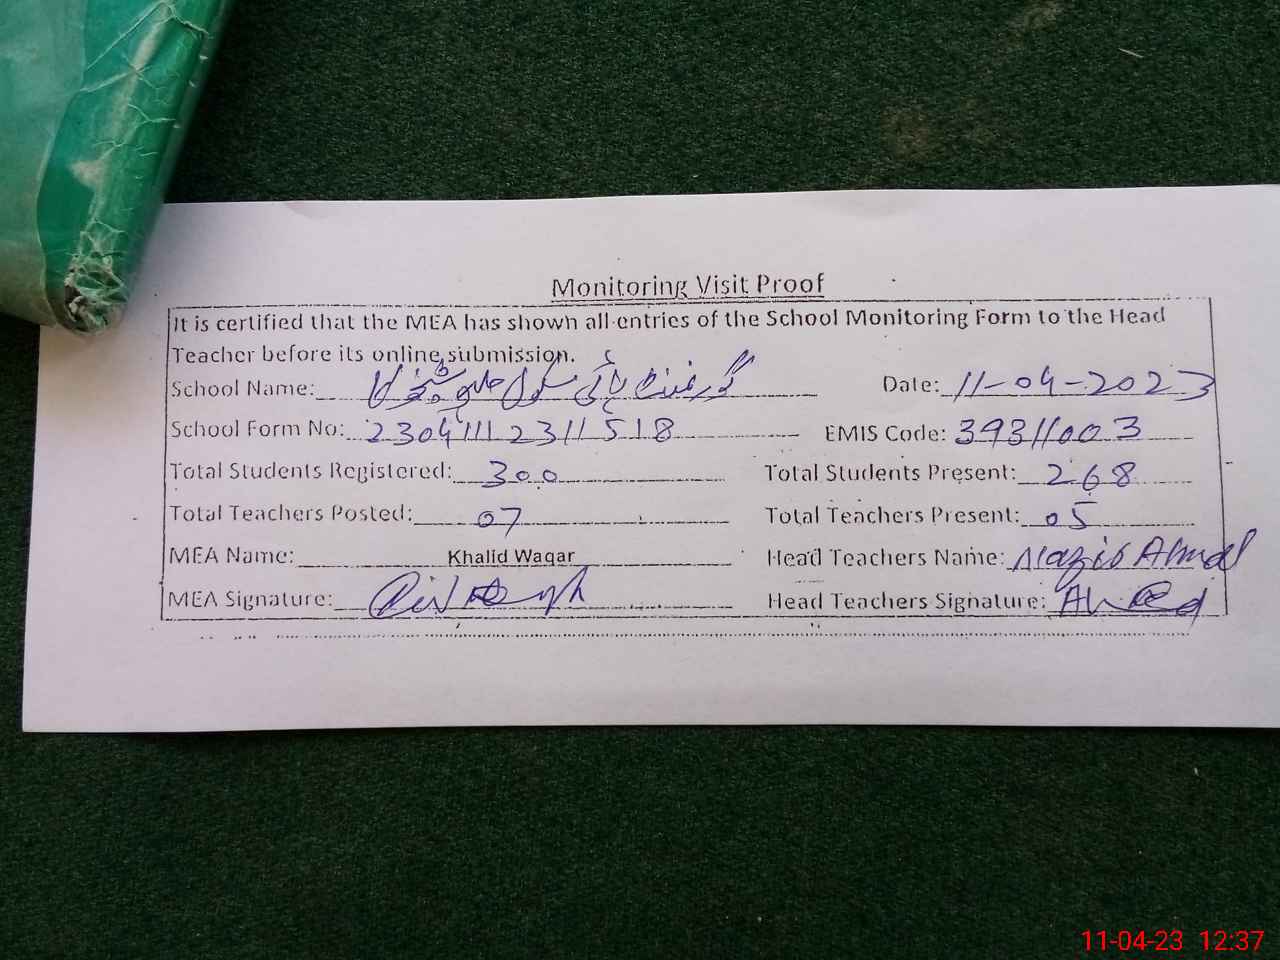 Monitoring Visit Proof
It is certified that the MEA has shown all entries of the School Monitoring Form to the Head
Teacher before its online submission.
School Name: گورنمنٹ ہائی سکول Date: 11-04-2023
School Form No: 23041112311518 EMIS Code: 39311003
Total Students Registered: 300 Total Students Present: 268
Total Teachers Posted: 07 Total Teachers Present: 05
MEA Name: Khalid Waqar Head Teachers Name: Ahmad
MEA Signature: Head Teachers Signature:
11-04-23 12:37